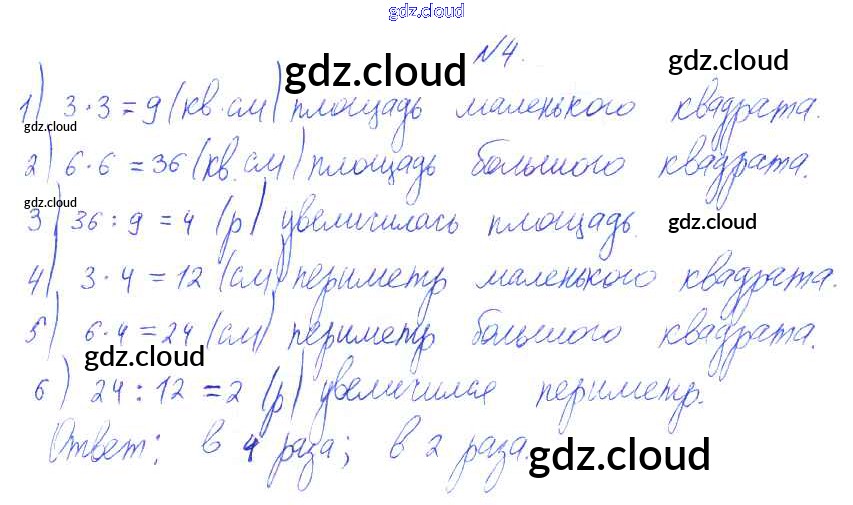 gdz.cloud
№4.
gdz.cloud gdz.cloud
1) 3·3=9 (кв.см) площадь маленького квадрата.
gdz.cloud
2) 6·6=36 (кв.см) площадь большого квадрата.
gdz.cloud
3) 36:9=4 (р) увеличилась площадь.
gdz.cloud
4) 3·4=12 (см) периметр маленького квадрата.
5) 6·4=24 (см) периметр большого квадрата.
gdz.cloud
6) 24:12=2 (р) увеличился периметр.
Ответ: в 4 раза; в 2 раза.
gdz.cloud